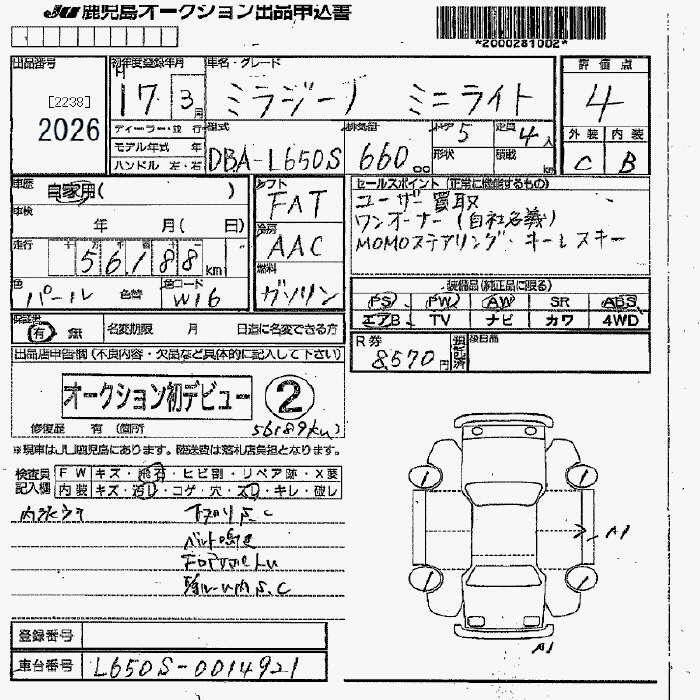 JU 鹿児島オークション出品申込書
*2000281002*
出品番号
[2238]
2026
初年度登録年月
H 17 年 3 月
車名・グレード
ミラジーノ ミニライト
評価点
4
外装 内装
C B
ディーラー・並行
モデル年式 年
ハンドル 左・右
型式
DBA-L650S
排気量
660 cc
ドア 5
形状
定員 4 人
積載 kg
車歴 自家用( )
車検
年 月( 日)
走行
56188 km
色
パール 色替
色コード
W16
シフト
FAT
冷房
AAC
燃料
ガソリン
セールスポイント (正常に機能するもの)
ユーザー買取
ワンオーナー(自社名義)
MOMOステアリング・キーレスキー
装備品 (純正品に限る)
PS PW AW SR ABS
エアB TV ナビ カワ 4WD
保証書
有 無
名変期限 月 日迄に名変できる方
R券
8,570 円
預託済
出品店申告欄 (不良内容・欠品など具体的に記入して下さい)
オークション初デビュー ②
修復歴 有 (箇所
56189km)
*現車はJU鹿児島にあります。陸送費は落札店負担となります。
検査員
記入欄
FW キズ・飛石・ヒビ割・リペア跡・X要
内装 キズ・汚レ・コゲ・穴・スレ・キレ・破レ
下廻りS.C
ベルト鳴き
A1
A1
登録番号
車台番号 L650S-0014921